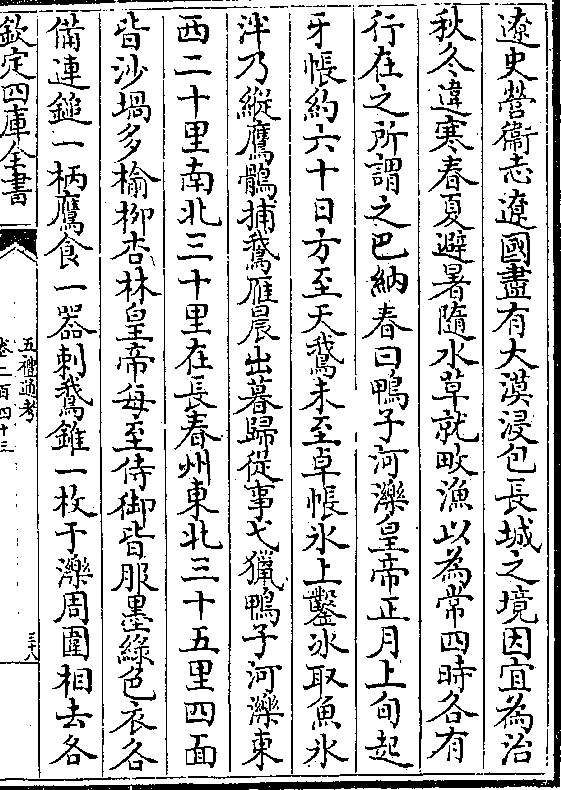 遼史營衞志遼國盡有大漠浸包長城之境因宜為治
秋冬違寒春夏避暑隨水草就畋漁以為常四時各有
行在之所謂之巴納春曰鴨子河濼皇帝正月上旬起
牙帳約六十日方至天鵝未至卓帳氷上鑿氷取魚氷
泮乃縱鷹鶻捕鵝雁晨出暮歸從事弋獵鴨子河濼東
西二十里南北三十里在長春州東北三十五里四面
皆沙堝多榆柳杏林皇帝每至侍御皆服墨綠色衣各
備連鎚一柄鷹食一器刺鵝錐一枚于濼周圍相去各
欽定四庫全書
五禮通考
卷二百四十三
三十八